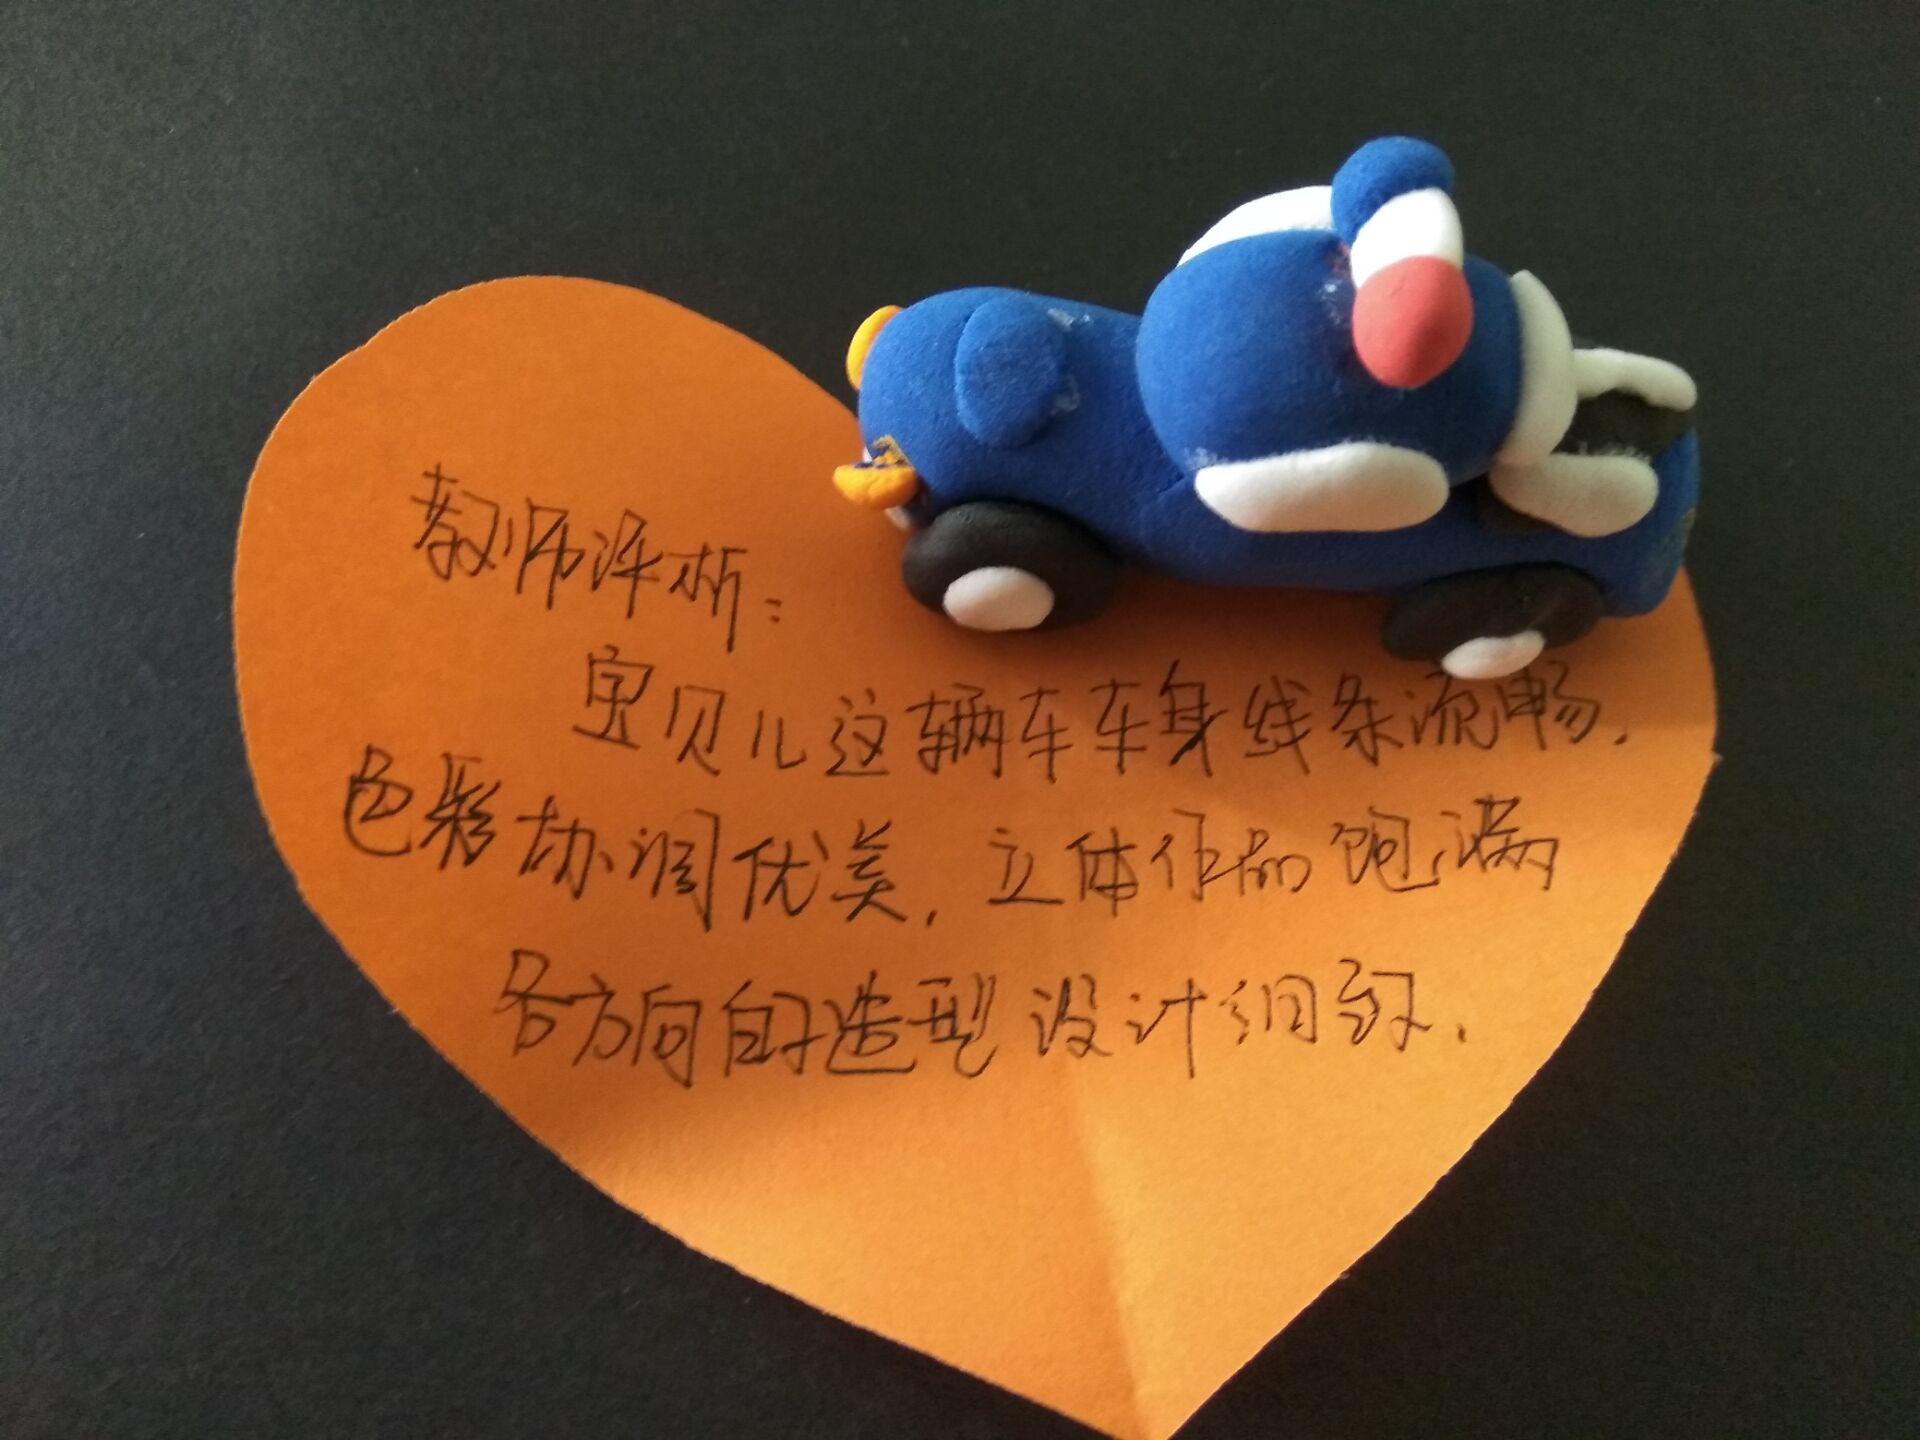 教师评析：
宝贝儿这辆车车身线条流畅.
色彩协调优美. 立体作品饱满
各方向的造型设计细致.